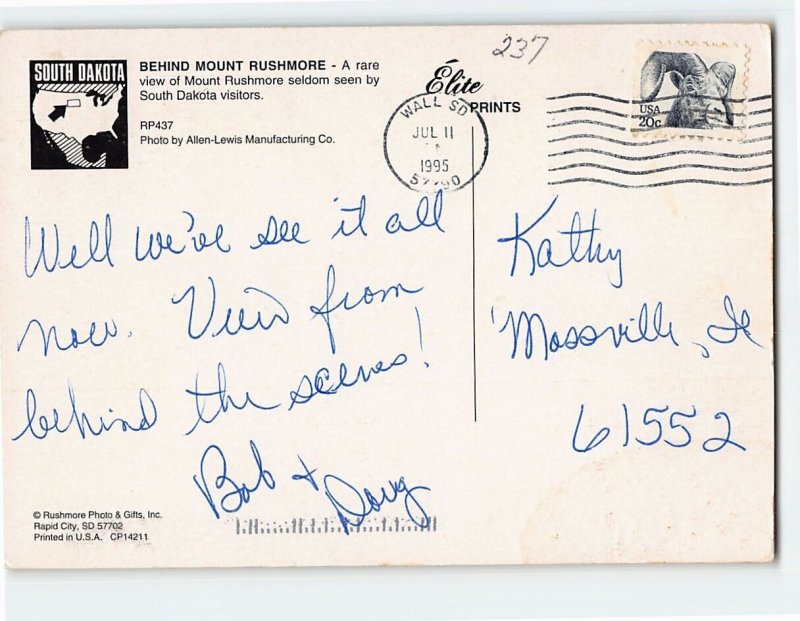 237
SOUTH DAKOTA
BEHIND MOUNT RUSHMORE - A rare
view of Mount Rushmore seldom seen by
South Dakota visitors.
RP437
Photo by Allen-Lewis Manufacturing Co.
Élite
PRINTS
WALL SD
JUL 11
1995
USA
20c
Well we've see it all
now. View from
behind the scenes!
Bob + Doug
Kathy
Mossville, Il
61552
© Rushmore Photo & Gifts, Inc.
Rapid City, SD 57702
Printed in U.S.A. CP14211